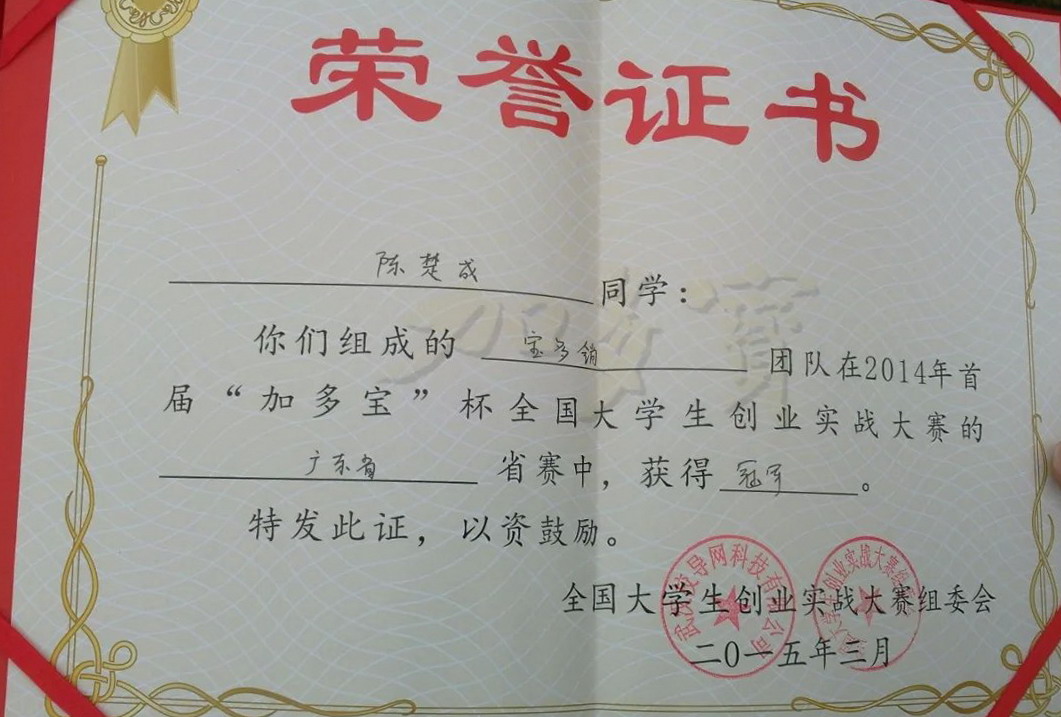 荣誉证书
陈楚成 同学：
你们组成的 宝多销 团队在2014年首
届“加多宝”杯全国大学生创业实战大赛的
广东省 省赛中，获得 冠军 。
特发此证，以资鼓励。
全国大学生创业实战大赛组委会
二〇一五年三月